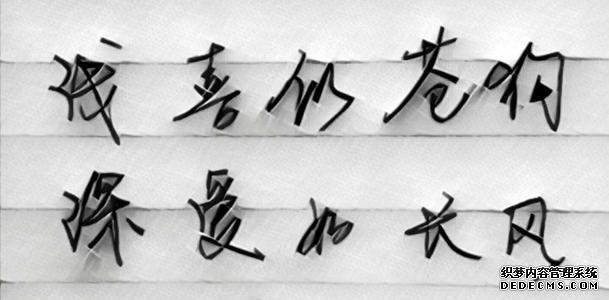 浅喜似苍狗
深爱如长风
织梦内容管理系统
DEDECMS.COM